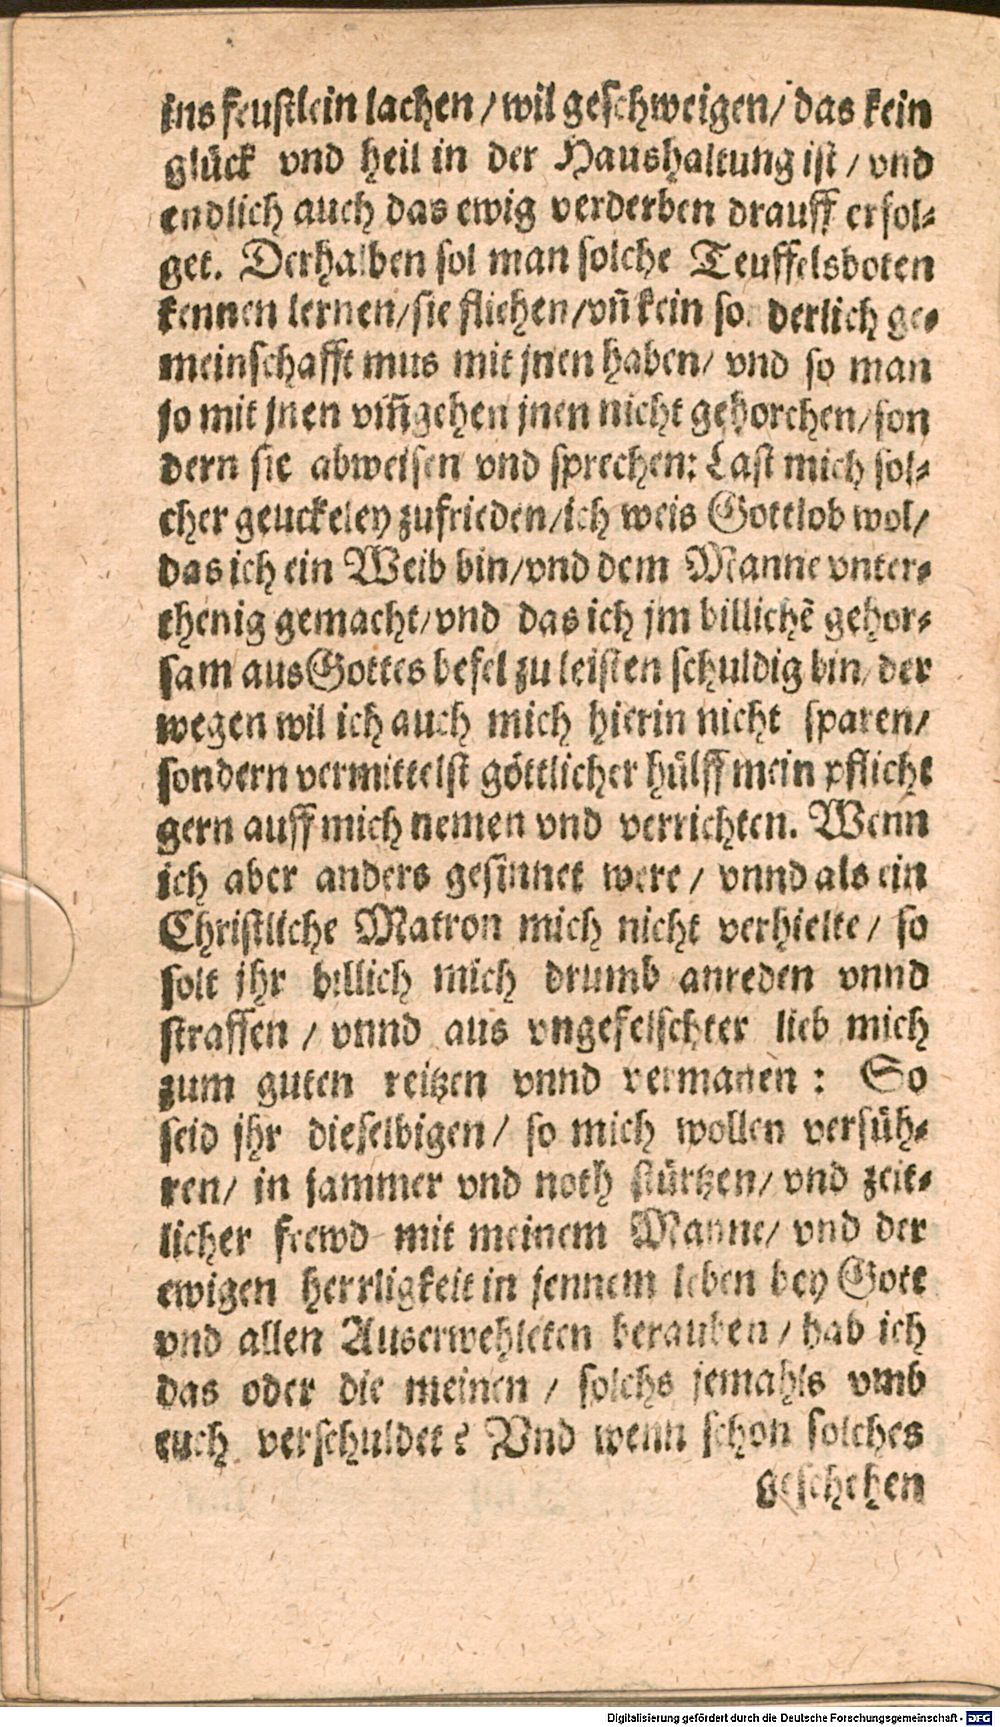 ins feustlein lachen / wil geschweigen / das kein
glück vnd heil in der Haushaltung ist / vnd
endlich auch das ewig verderben drauff erfol-
get. Derhalben sol man solche Teuffelsboten
kennen lernen / sie fliehen / vñ kein sonderlich ge-
meinschafft mus mit jnen haben / vnd so man
jo mit jnen vm̃gehen jnen nicht gehorchen / son
dern sie abweisen vnd sprechen: Last mich sol-
cher geuckeley zufrieden / ich weis Gottlob wol /
das ich ein Weib bin / vnd dem Manne vnter-
thenig gemacht / vnd das ich jm billichẽ gehor-
sam aus Gottes befel zu leisten schuldig bin / der
wegen wil ich auch mich hierin nicht sparen /
sondern vermittelst göttlicher hülff mein pflicht
gern auff mich nemen vnd verrichten. Wenn
ich aber anders gesinnet were / vnnd als ein
Christliche Matron mich nicht verhielte / so
solt jhr billich mich drumb anreden vnnd
straffen / vnnd aus vngefelschter lieb mich
zum guten reitzen vnnd vermanen : So
seid jhr dieselbigen / so mich wollen verfüh-
ren / in jammer vnd noth stürtzen / vnd zeit-
licher frewd mit meinem Manne / vnd der
ewigen herrligkeit in jennem leben bey Gott
vnd allen Auserwehleten berauben / hab ich
das oder die meinen / solchs jemahls vmb
euch verschuldet? Vnd wenn schon solches
geschehen
Digitalisierung gefördert durch die Deutsche Forschungsgemeinschaft - DFG